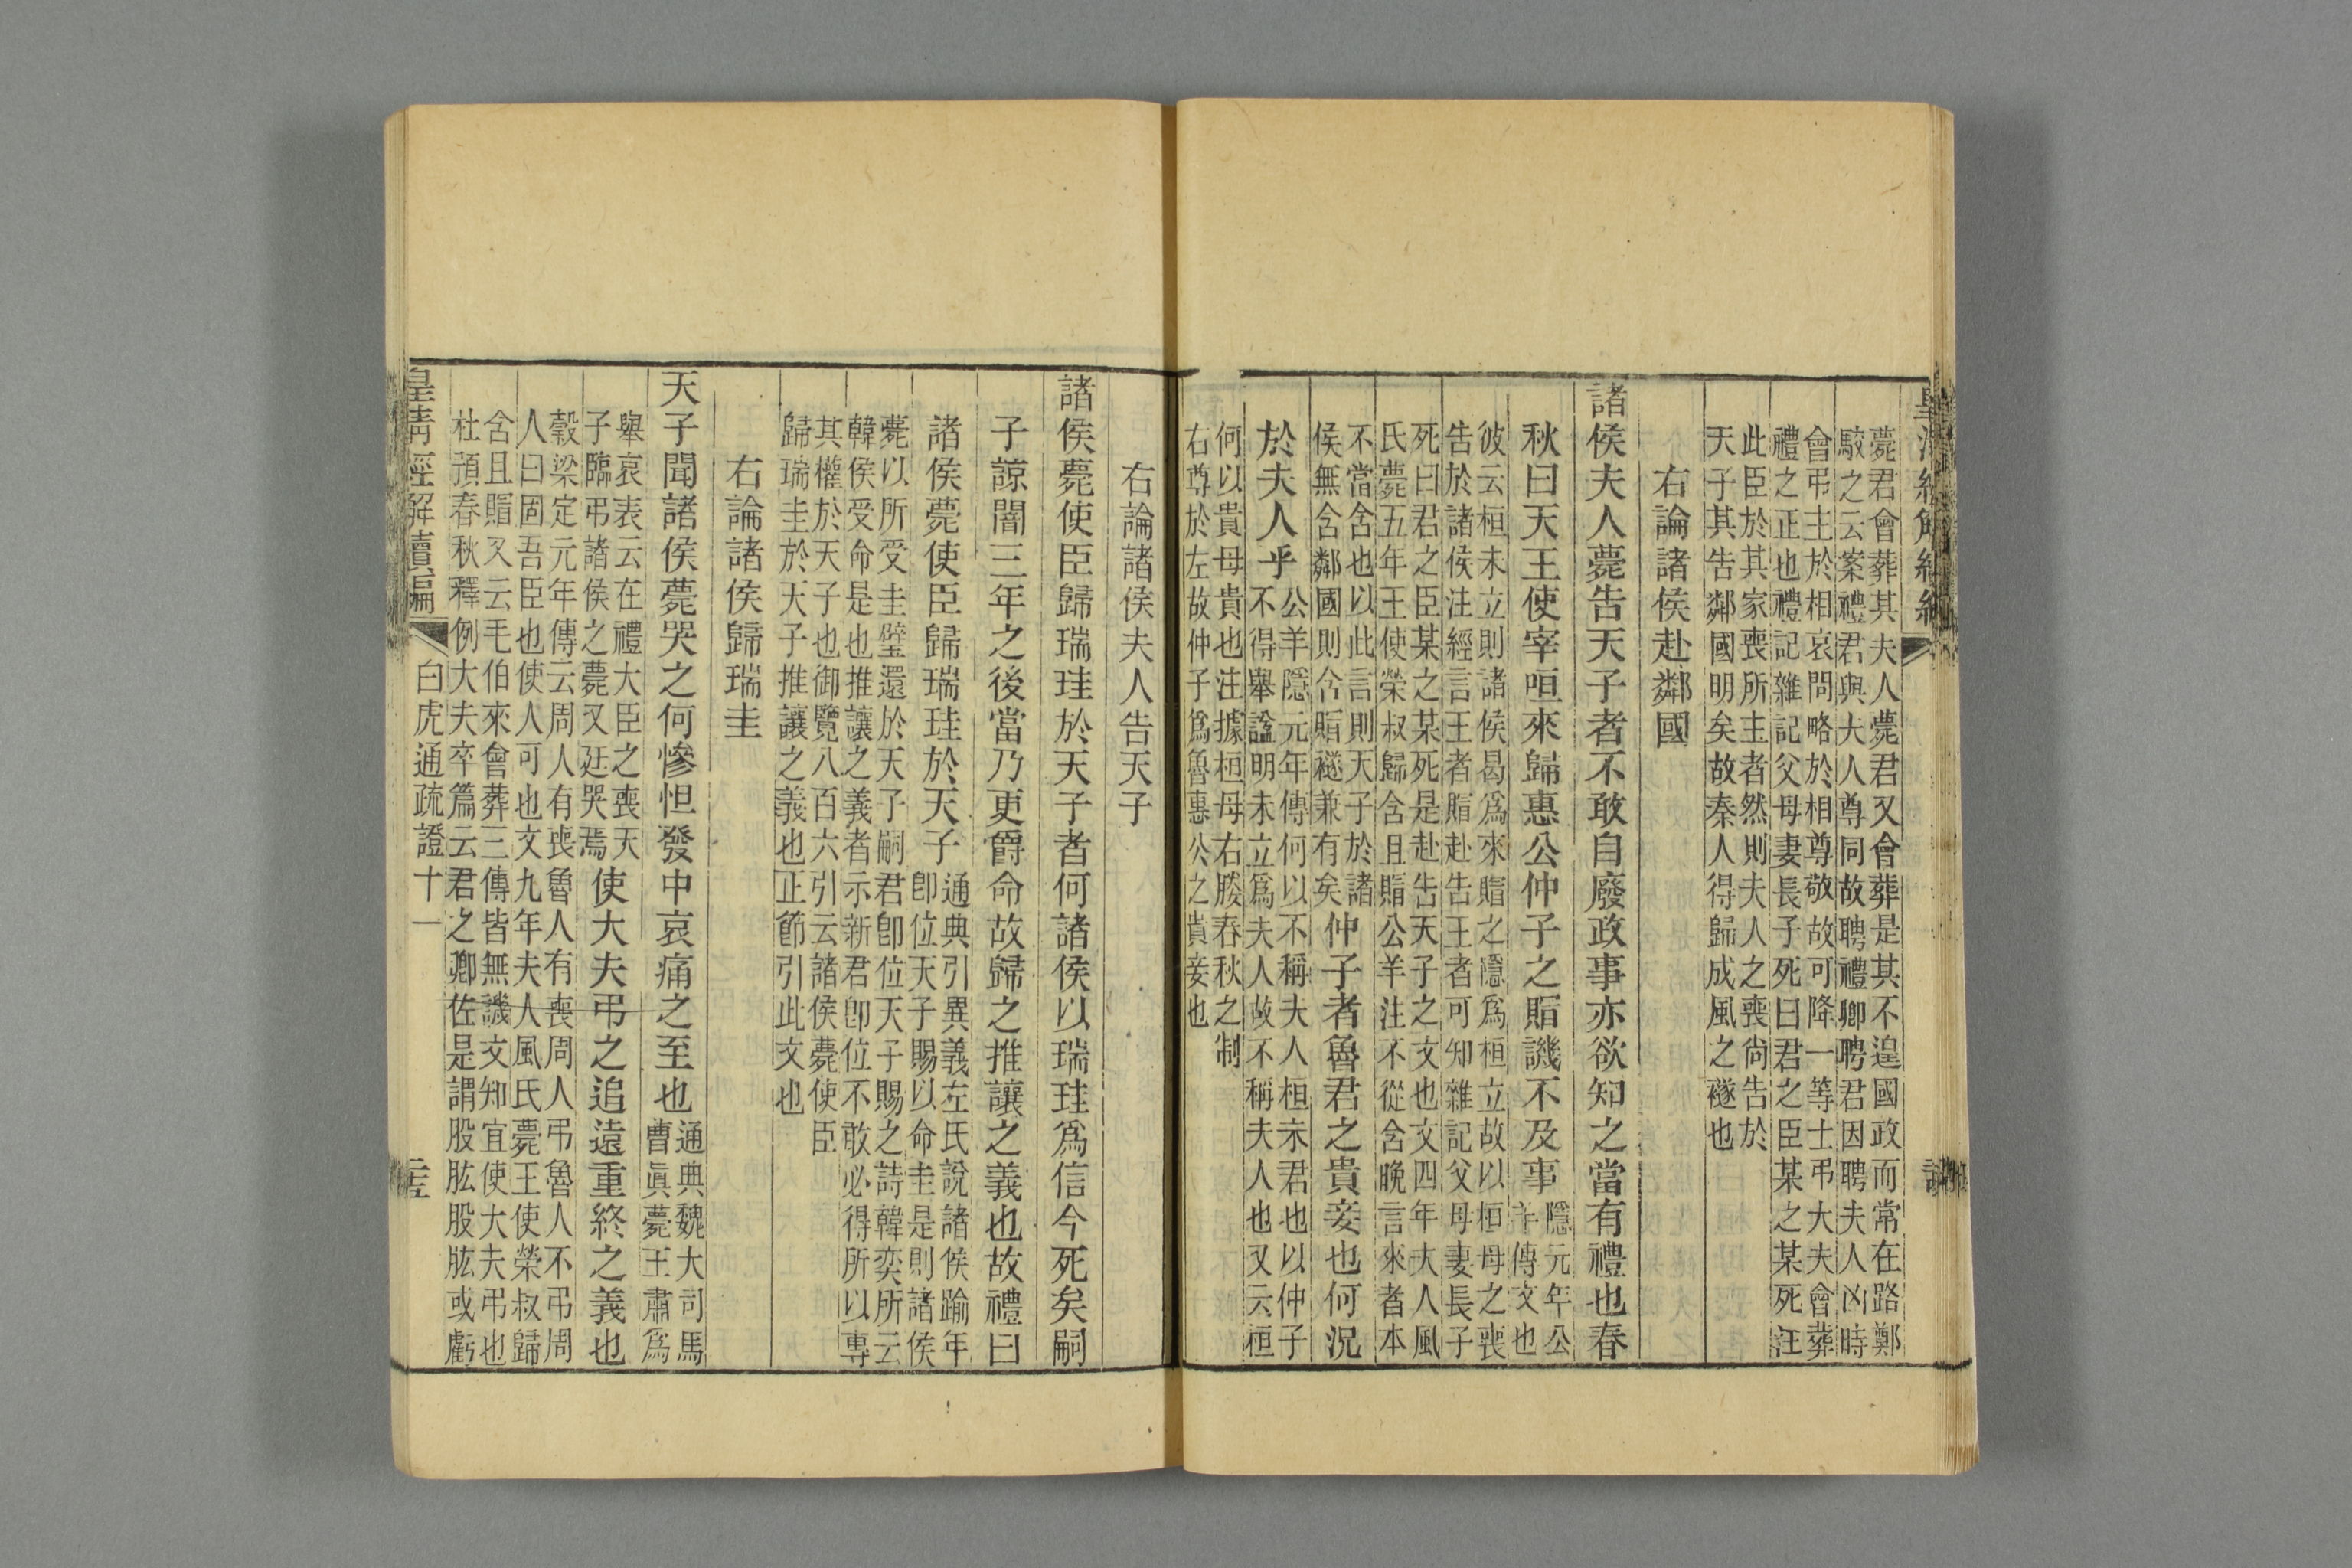 薨君會葬其夫人薨君又會葬是其不遑國政而常在路鄭
駮之云案禮君與夫人尊同故聘禮卿聘君因聘夫人凶時
會弔主於相哀問略於相尊敬故可降一等士弔大夫會葬
禮之正也禮記雜記父母妻長子死曰君之臣某之某死注
此臣於其家喪所主者然則夫人之喪尚告於
天子其告鄰國明矣故秦人得歸成風之襚也
右論諸侯赴鄰國
諸侯夫人薨告天子者不敢自廢政事亦欲知之當有禮也春
秋曰天王使宰咺來歸惠公仲子之賵譏不及事
隱元年公
羊傳文也
彼云桓未立則諸侯曷爲來賵之隱爲桓立故以桓母之喪
告於諸侯注經言王者賵赴告王者可知雜記父母妻長子
死曰君之臣某之某死是赴告天子之文也文四年夫人風
氏薨五年王使榮叔歸含且賵公羊注不從含晚言來者本
不當含也以此言則天子於諸
侯無含鄰國則含賵襚兼有矣
仲子者魯君之貴妾也何況
於夫人乎
公羊隱元年傳何以不稱夫人桓未君也以仲子
不得舉諡明未立爲夫人故不稱夫人也又云桓
何以貴母貴也注據桓母右媵春秋之制
右尊於左故仲子爲魯惠公之貴妾也
右論諸侯夫人告天子
諸侯薨使臣歸瑞珪於天子者何諸侯以瑞珪爲信今死矣嗣
子諒闇三年之後當乃更爵命故歸之推讓之義也故禮曰
諸侯薨使臣歸瑞珪於天子
通典引異義左氏說諸侯踰年
卽位天子賜以命圭是則諸侯
薨以所受圭璧還於天子嗣君卽位天子賜之詩韓奕所云
韓侯受命是也推讓之義者示新君卽位不敢必得所以專
其權於天子也御覽八百六引云諸侯薨使臣
歸瑞圭於天子推讓之義也正節引此文也
右論諸侯歸瑞圭
天子聞諸侯薨哭之何慘怛發中哀痛之至也
通典魏大司馬
曹眞薨王肅爲
舉哀表云在禮大臣之喪天
子臨弔諸侯之薨又廷哭焉
使大夫弔之追遠重終之義也
穀梁定元年傳云周人有喪魯人有喪周人弔魯人不弔周
人曰固吾臣也使人可也文九年夫人風氏薨王使榮叔歸
含且賵又云毛伯來會葬三傳皆無譏文知宜使大夫弔也
杜預春秋釋例大夫卒篇云君之卿佐是謂股肱股肱或虧
皇淸經解續編
白虎通疏證十一